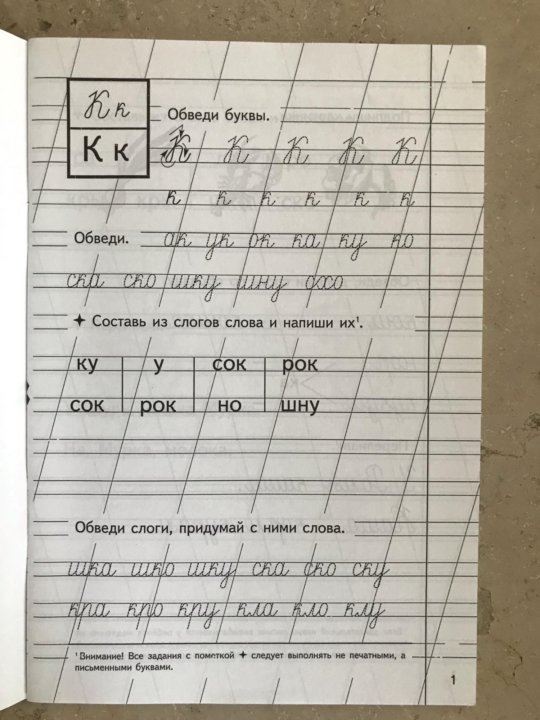 К к
Обведи буквы.
К к
К К К К К
к к к к к к
Обведи. ак ук ок ка ку ко
ска ско шку шну охо
✦ Составь из слогов слова и напиши их¹.
ку у сок рок
сок рок но шну
Обведи слоги, придумай с ними слова.
шка шко шку ска ско ску
кра кро кру кла кло клу
¹ Внимание! Все задания с пометкой ✦ следует выполнять не печатными, а
письменными буквами.
1